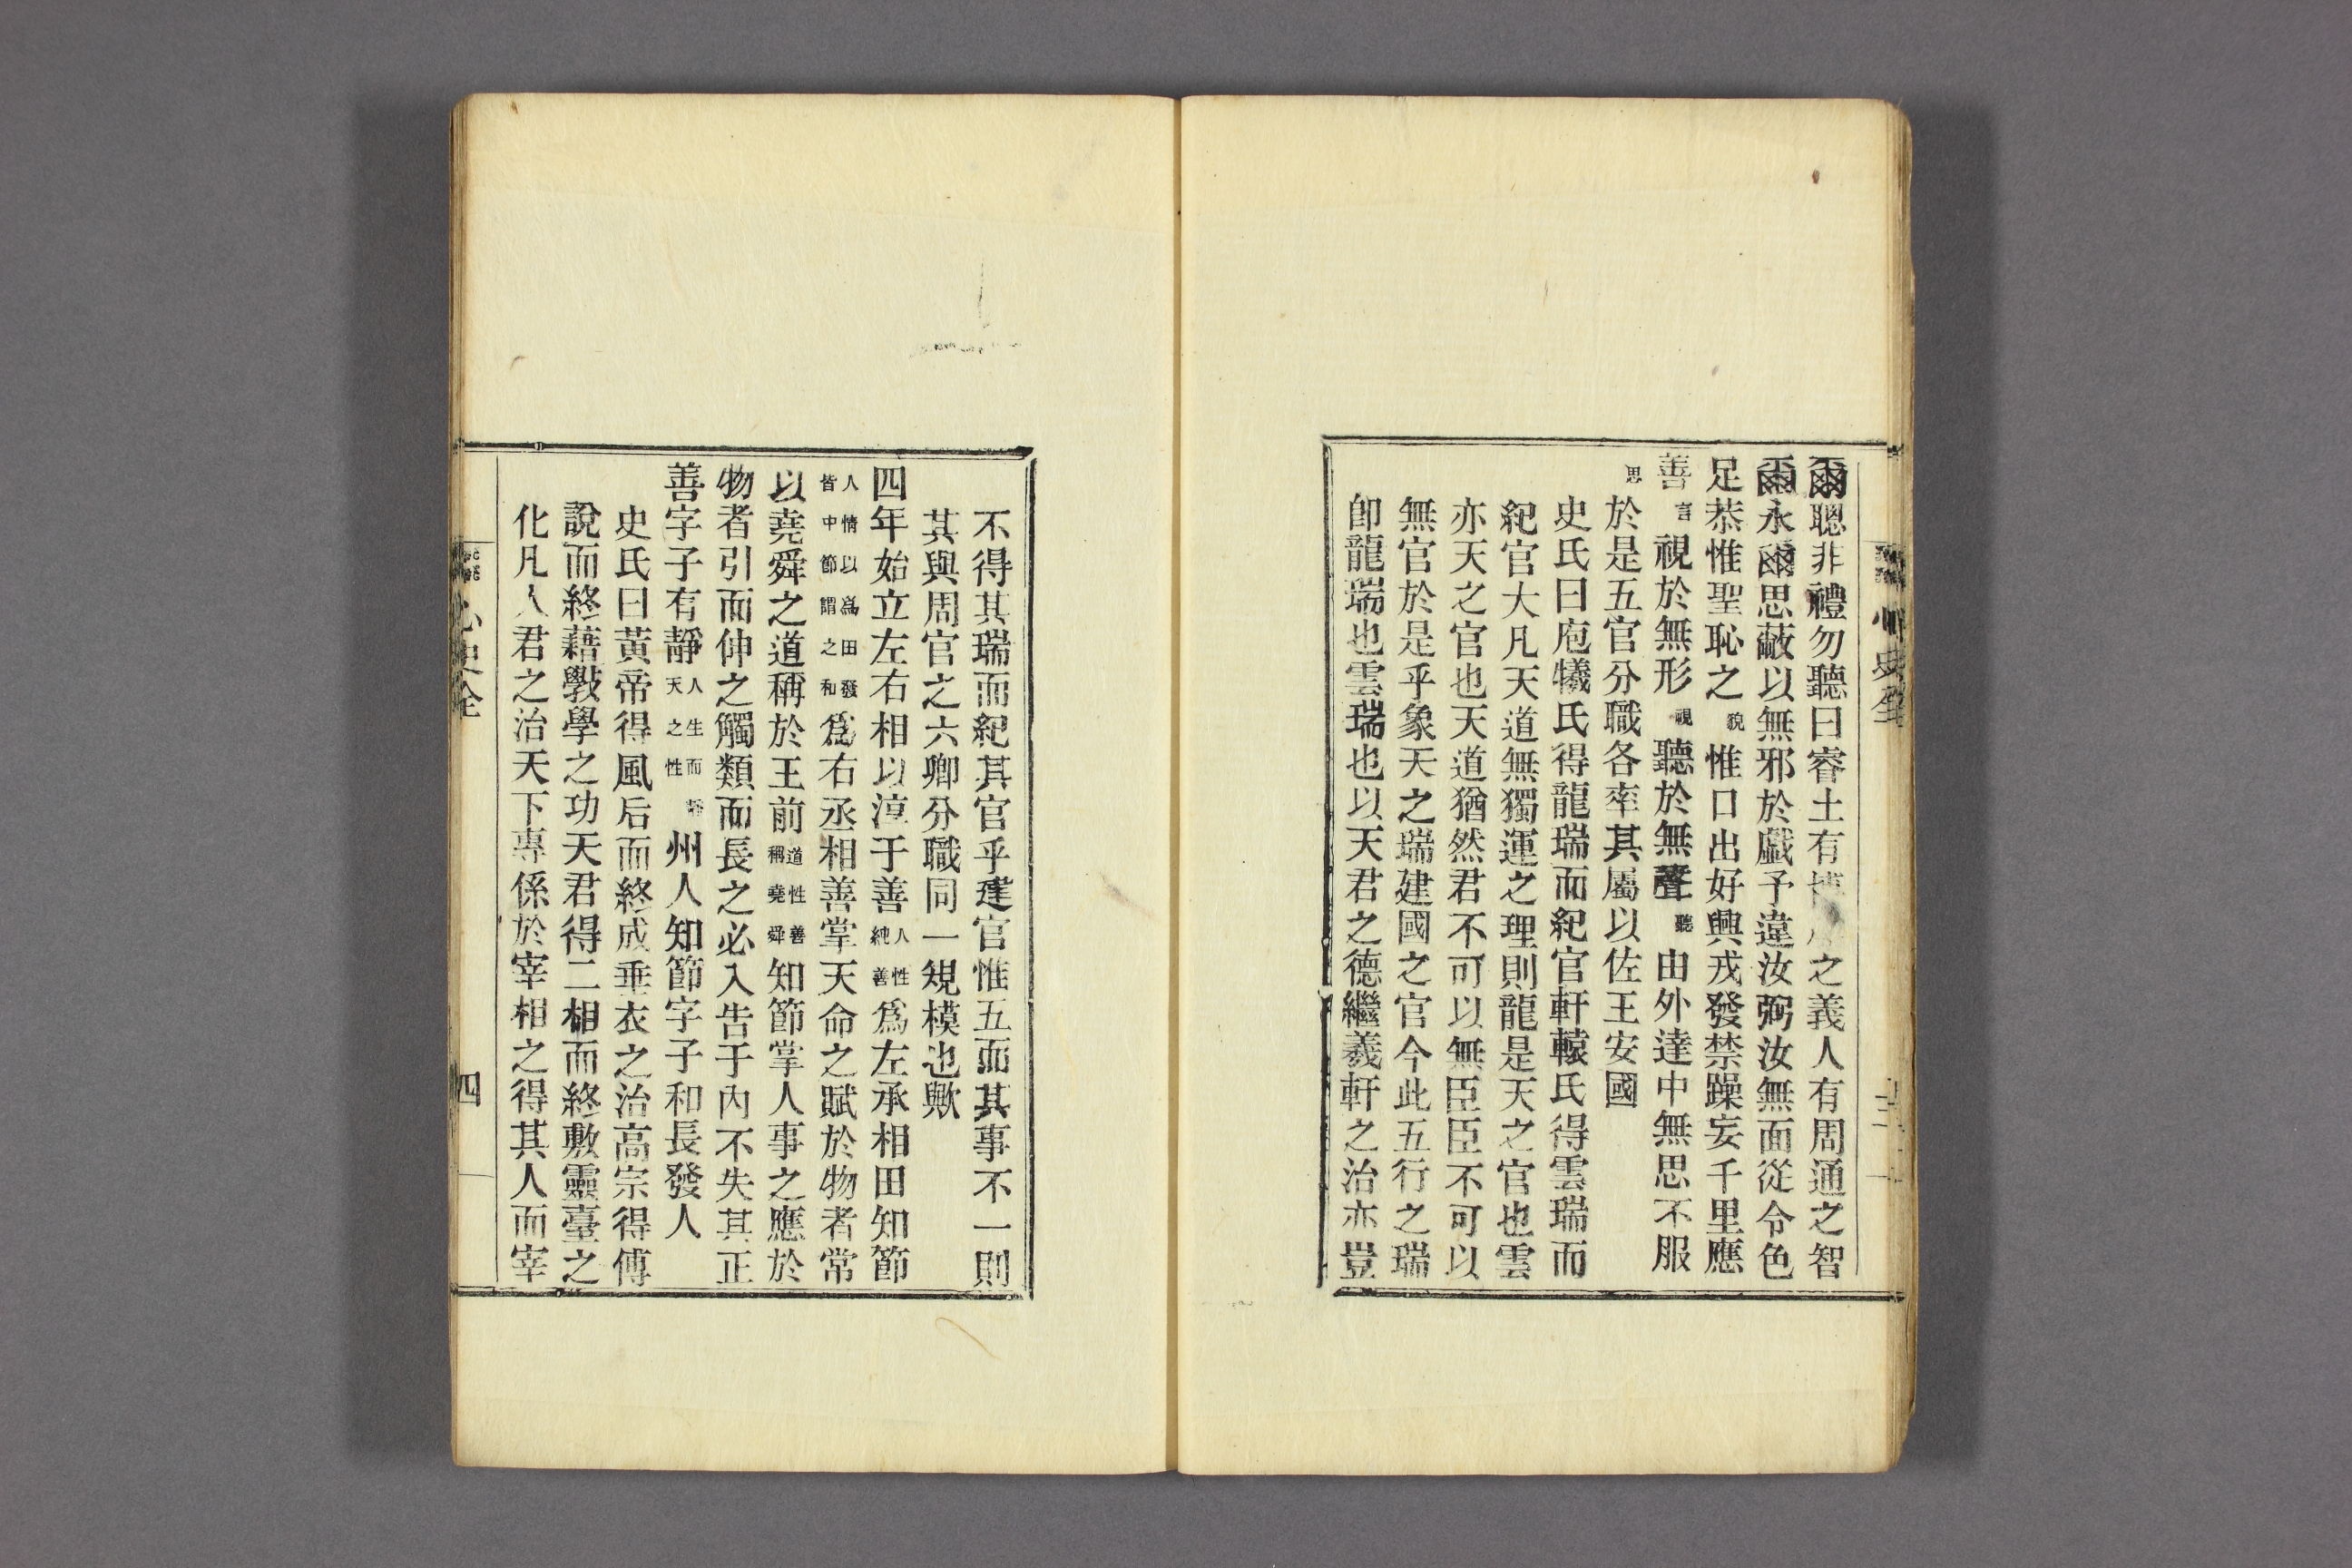 爾聰非禮勿聽曰睿土有之義人有周通之智
爾永爾思蔽以無邪於戲予違汝弼汝無面從令色
足恭惟聖恥之貌惟口出好興戎發禁躁妄千里應
善言視於無形視聽於無聲聽由外達中無思不服
思於是五官分職各率其屬以佐王安國
史氏曰庖犧氏得龍瑞而紀官軒轅氏得雲瑞而
紀官大凡天道無獨運之理則龍是天之官也雲
亦天之官也天道猶然君不可以無臣臣不可以
無官於是乎象天之瑞建國之官今此五行之瑞
卽龍瑞也雲瑞也以天君之德繼羲軒之治亦豈
心史全
不得其瑞而紀其官乎建官惟五而其事不一則
其與周官之六卿分職同一規模也歟
四年始立左右相以淳于善人性純善爲左承相田知節
人情以爲田發皆中節謂之和爲右丞相善掌天命之賦於物者常
以堯舜之道稱於王前道性善稱堯舜知節掌人事之應於
物者引而伸之觸類而長之必入告于內不失其正
善字子有靜人生而靜天之性州人知節字子和長發人
史氏曰黃帝得風后而終成垂衣之治高宗得傅
說而終藉斅學之功天君得二相而終敷靈臺之
化凡人君之治天下專係於宰相之得其人而宰
心史全 四